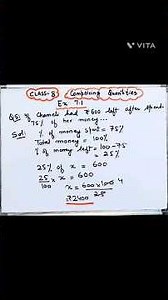 VITA
CLASS-8 Comparing Quantities
Ex 7.1
Q5: If Chameli had ₹600 left after spending
75% of her money...
Sol: % of money spent = 75%
Total money = 100%
% of money left = 100-75
= 25%
25% of x = 600
25/100 x x = 600
x = 600x100 4
25
₹2400